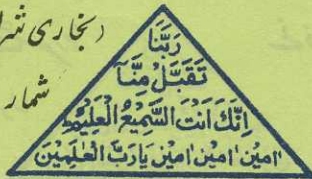 (بخاری شر
شمار
رَبَّنَا
تَقَبَّلْ مِنَّآ
اِنَّكَ اَنْتَ السَّمِيْعُ الْعَلِيْمُ
اٰمِيْن' اٰمِيْن' اٰمِيْن يَارَبَّ الْعٰلَمِيْنَ